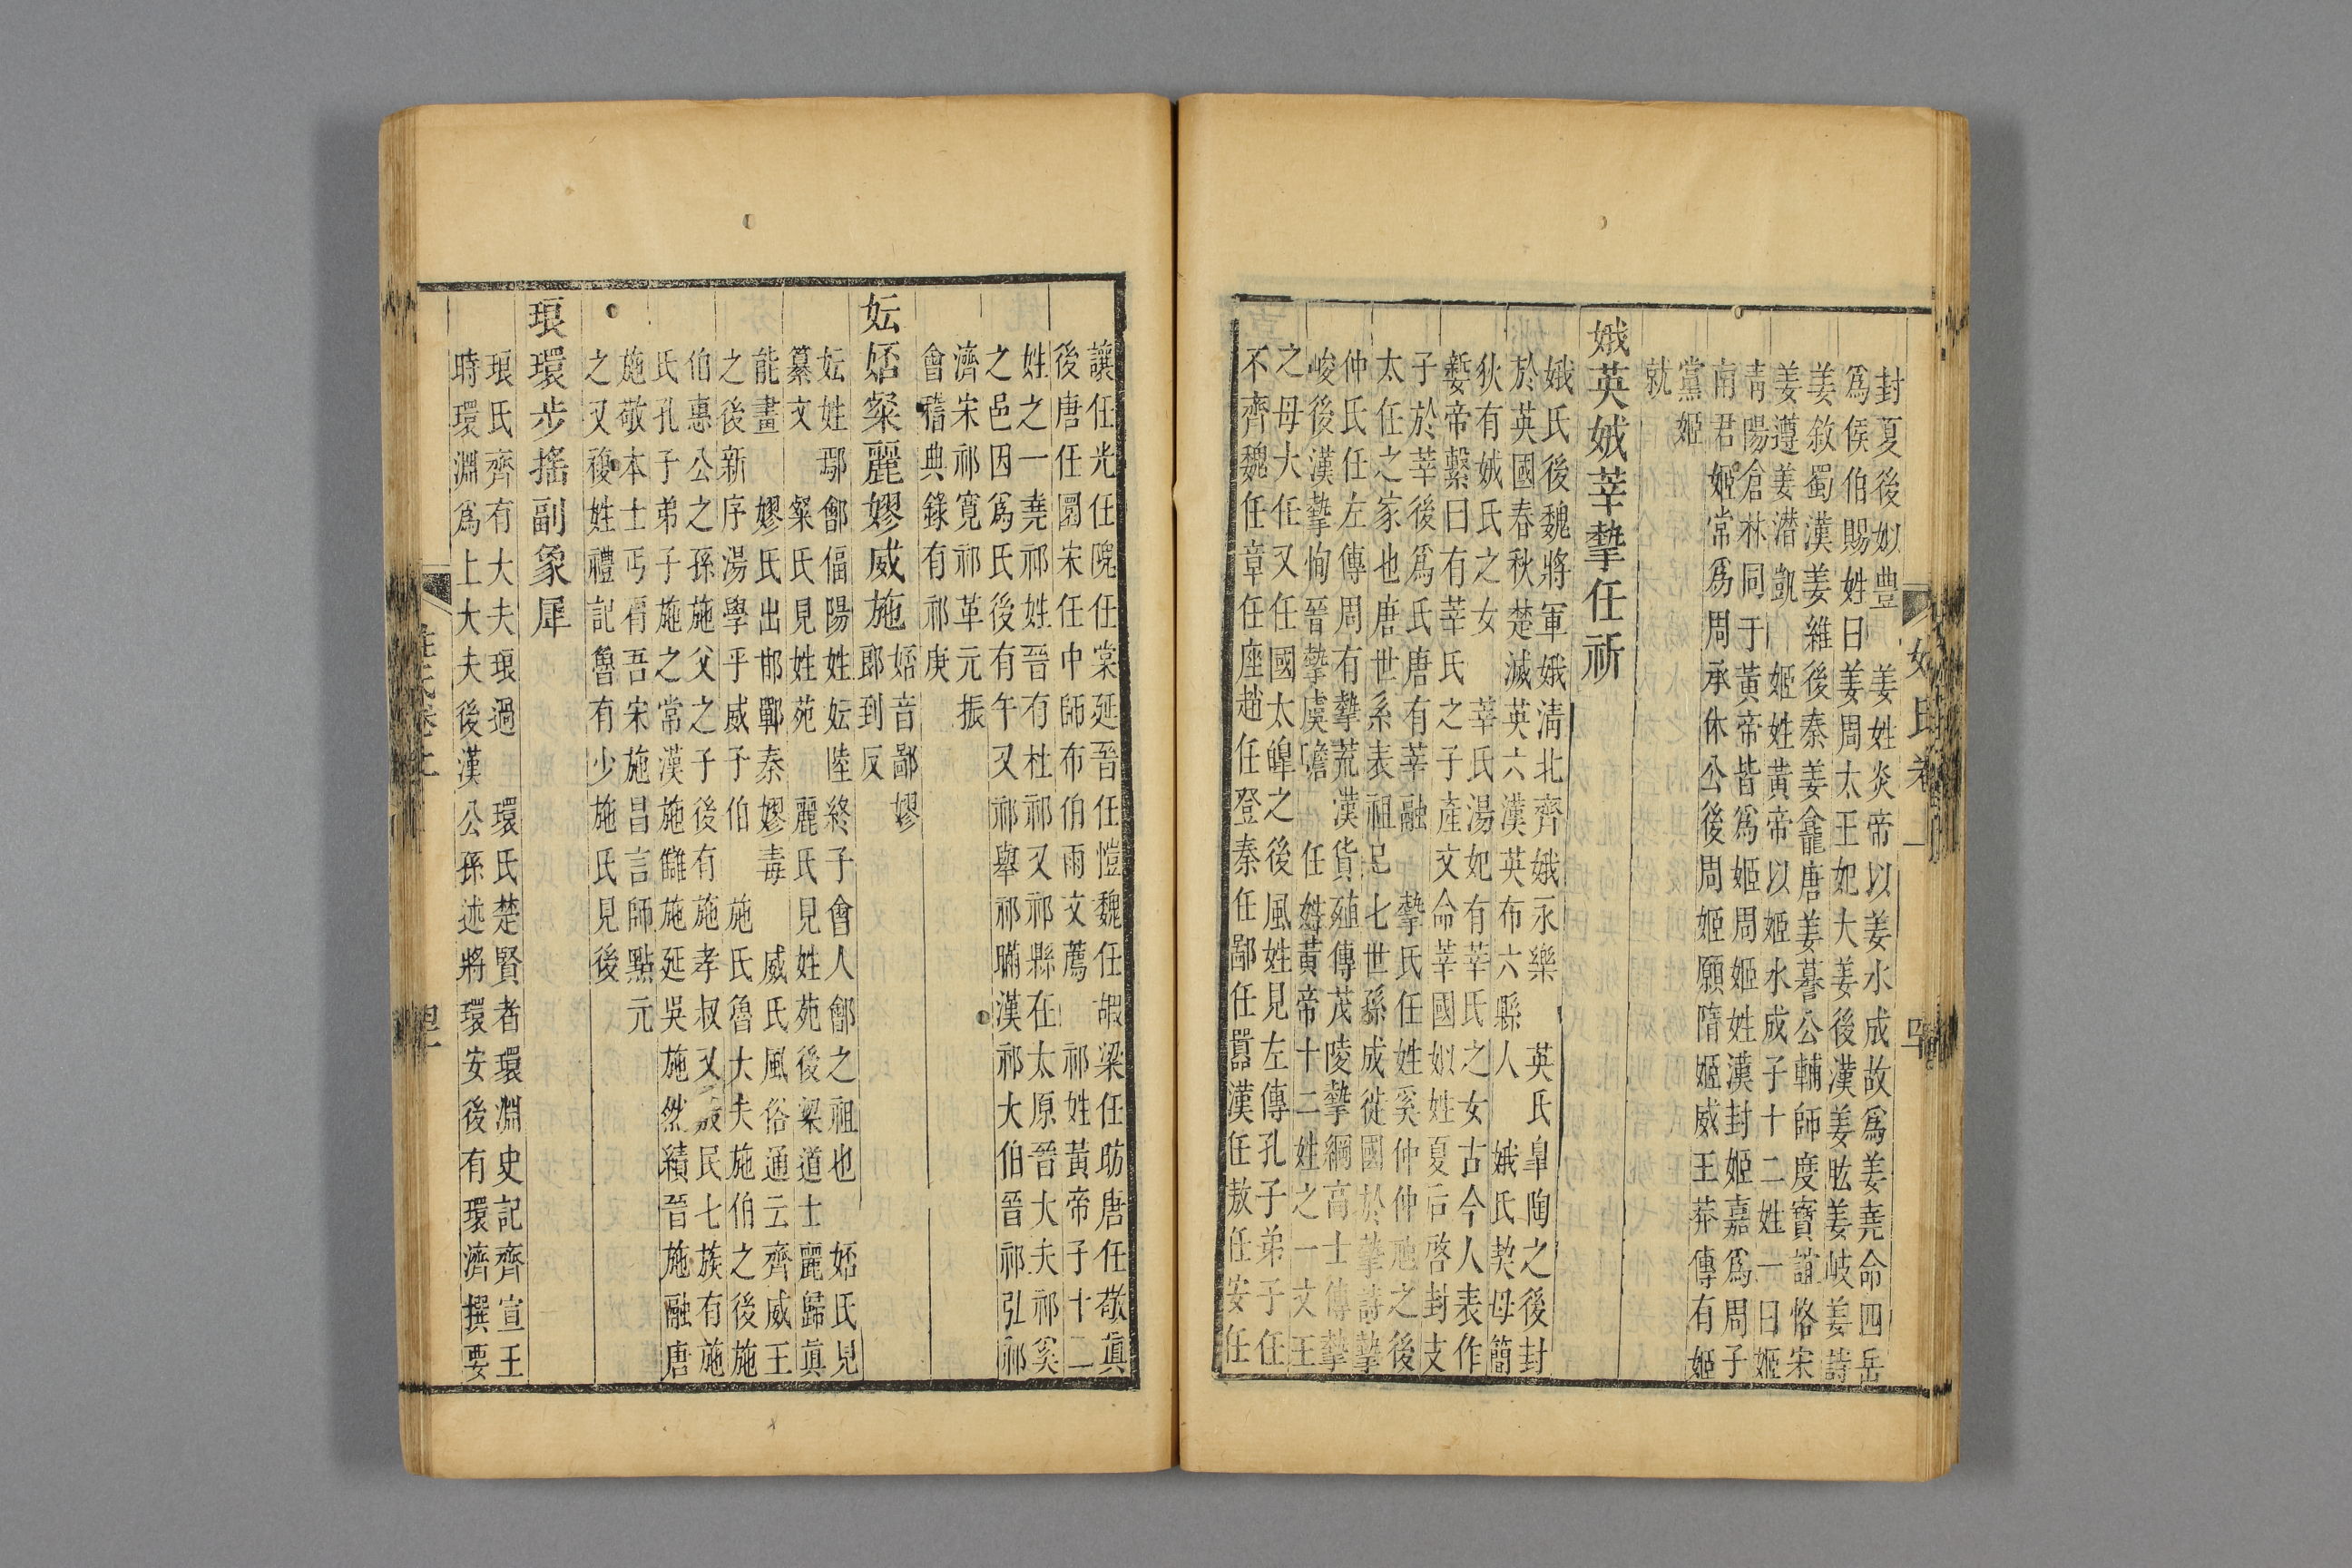 封夏後姒豐　姜姓炎帝以姜水成故爲姜堯命四岳
爲侯伯賜姓曰姜周太王妃大姜後漢姜肱姜岐姜詩
姜敘蜀漢姜維後秦姜龕唐姜謩公輔師度寶誼恪宋
姜遵姜潜凱　姬姓黃帝以姬水成子十二姓一曰姬
青陽倉林同于黃帝皆爲姬周姬姓漢封姬嘉爲周子
南君姬常爲周承休公後周姬願隋姬威王莽傳有姬
黨姬
就
娥英娀莘摯任祈
娥氏後魏將軍娥淸北齊娥永樂　英氏皐陶之後封
於英國春秋楚滅英六漢英布六縣人　娀氏契母簡
狄有娀氏之女　莘氏湯妃有莘氏之女古今人表作
嫠帝繫曰有莘氏之子產文命莘國姒姓夏后啓封支
子於莘後爲氏唐有莘融　摯氏任姓奚仲仲虺之後
太任之家也唐世系表祖已七世孫成徙國於摯詩摯
仲氏任左傳周有摯荒漢貨殖傳茂陵摯綱高士傳摯
峻後漢摯恂晉摯虞瞻　任姓黃帝十二姓之一文王
之母大任又任國太皥之後風姓見左傳孔子弟子任
不齊魏任章任座趙任登秦任鄙任囂漢任敖任安任
讓任光任隗任棠延晉任愷魏任嘏梁任昉唐任敬眞
後唐任圜宋任中師布伯雨文薦　祁姓黃帝子十二
姓之一堯祁姓晉有杜祁又祁縣在太原晉大夫祁奚
之邑因爲氏後有午又祁舉祁暪漢祁大伯晉祁弘祁
濟宋祁寬祁革元振
會稽典錄有祁庚
妘㛓粲麗嫪威施　㛓音鄙嫪
郎到反
妘姓鄢鄶偪陽姓妘陸終子會人鄶之祖也　㛓氏見
纂文　粲氏見姓苑　麗氏見姓苑後梁道士麗歸眞
能畫　嫪氏出邯鄲秦嫪毒　威氏風俗通云齊威王
之後新序湯學乎威子伯　施氏魯大夫施伯之後施
伯惠公之孫施父之子後有施孝叔又殷民七族有施
氏孔子弟子施之常漢施讎施延吳施然績晉施融唐
施敬本士丐肩吾宋施昌言師點元
之又複姓禮記魯有少施氏見後
琅環步搖副象犀
琅氏齊有大夫琅過　環氏楚賢者環淵史記齊宣王
時環淵爲上大夫後漢公孫述將環安後有環濟撰要